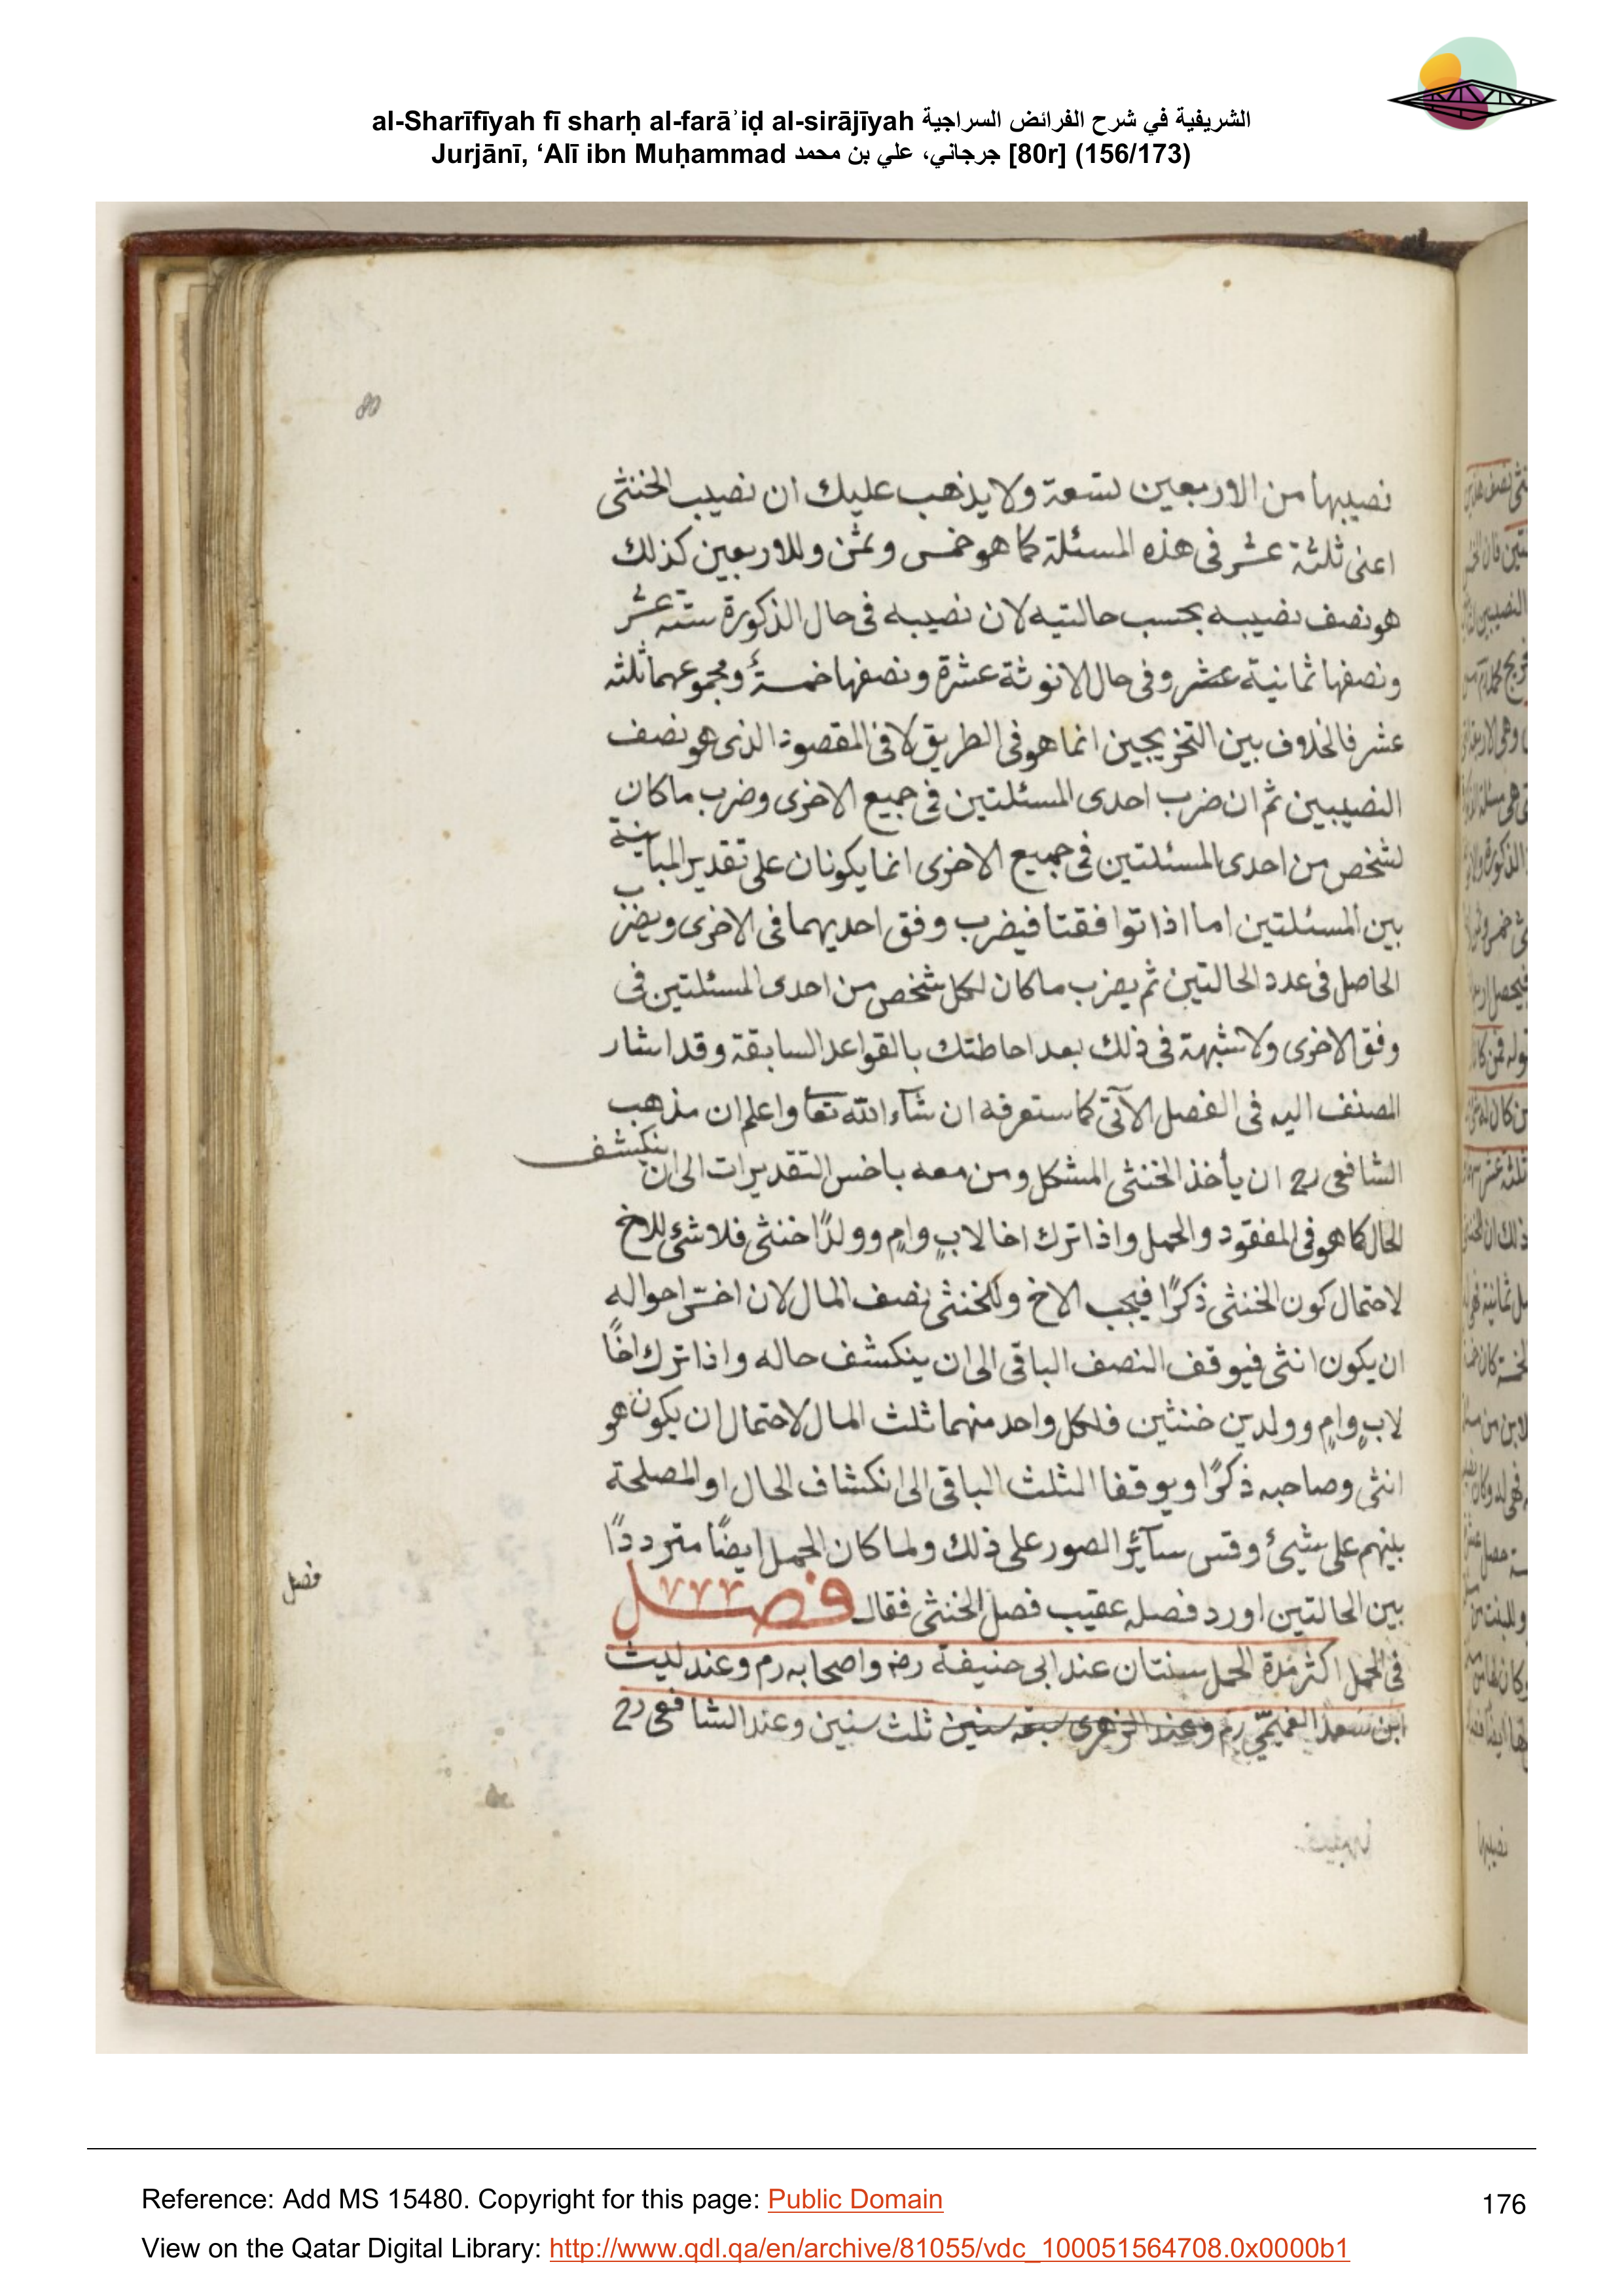 al-Sharīfīyah fī sharḥ al-farāʾiḍ al-sirājīyah الشريفية في شرح الفرائض السراجية
Jurjānī, ‘Alī ibn Muḥammad جرجاني، علي بن محمد [80r] (156/173)
80
نصيبها من الاربعين تسعة ولا يذهب عليك ان نصيب الخنثى
اعنى ثلثة عشر فى هذه المسئلة كما هو خمس وثمن وللاربعين كذلك
هو نصف نصيبه بحسب حالتيه لان نصيبه فى حال الذكورة ستة عشر
ونصفها ثمانية عشر وفى حال الانوثة عشرة ونصفها خمسة ومجموعهما ثلثة
عشر فالخلاف بين التخريجين انما هو فى الطريق لا فى المقصود الذى هو نصف
النصيبين ثم ان ضرب احدى المسئلتين فى جميع الاخرى وضرب ما كان
لشخص من احدى المسئلتين فى جميع الاخرى انما يكونان على تقدير المباينة
بين المسئلتين اما اذا توافقتا فيضرب وفق احديهما فى الاخرى ويضرب
الحاصل فى عدد الحالتين ثم يضرب ما كان لكل شخص من احدى المسئلتين فى
وفق الاخرى ولا شبهة فى ذلك بعد احاطتك بالقواعد السابقة وقد اشار
المصنف اليه فى الفصل الآتى كما ستعرفه ان شآء الله تعا واعلم ان مذهب
الشافعى رح ان يأخذ الخنثى المشكل ومن معه باخس التقديرات الى ان ينكشف
الحال كما هو فى المفقود والحمل واذا ترك اخا لابٍ وامٍ وولدًا خنثى فلا شئ للاخ
لاحتمال كون الخنثى ذكرًا فيحجب الاخ وللخنثى نصف المال لان اخسّ احواله
ان يكون انثى فيوقف النصف الباقى الى ان ينكشف حاله واذا ترك اخًا
لابٍ وامٍ وولدين خنثين فلكل واحد منهما ثلث المال لاحتمال ان يكون هو
انثى وصاحبه ذكرًا ويوقف الثلث الباقى الى انكشاف الحال او المصلحة
بينهم على شيئ وقس سآئر الصور على ذلك ولما كان الحمل ايضًا مترددًا
بين الحالتين اورد فصله عقيب فصل الخنثى فقال فصل
فصل
فى الحمل اكثر مدة الحمل سنتان عند ابى حنيفة رض واصحابه رم وعند ليث
ابن سعد رم وعند الزهرى سبع سنين ثلث سنين وعند الشافعى رح
Reference: Add MS 15480. Copyright for this page: Public Domain
176
View on the Qatar Digital Library: http://www.qdl.qa/en/archive/81055/vdc_100051564708.0x0000b1